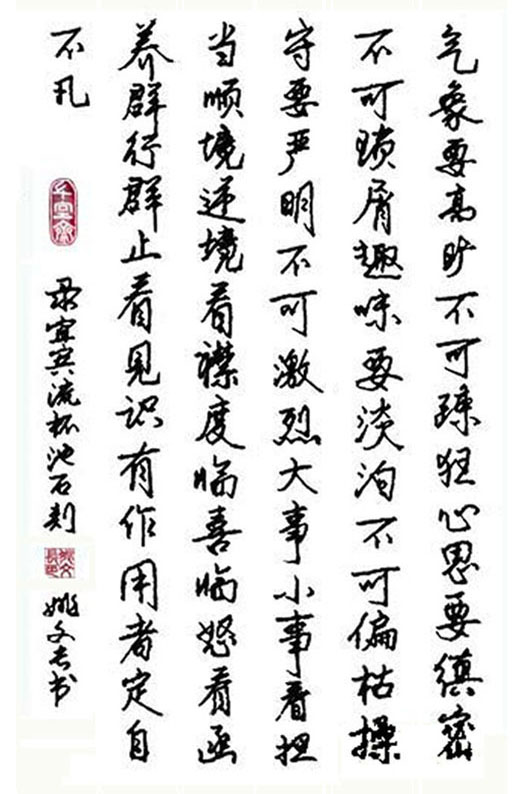 气象要高旷不可踈狂心思要缜密
不可琐屑趣味要淡泊不可偏枯操
守要严明不可激烈大事小事看担
当顺境逆境看襟度临喜临怒看涵
养群行群止看见识有作用者定自
不凡
录宜宾流杯池石刻
姚文长书